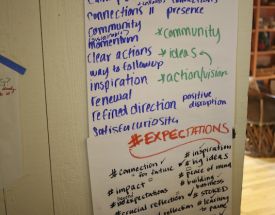 connections = presence
community *community
momentum
clear actions *ideas
way to follow up
inspiration *action/vision
renewal
refined direction positive disruption
satisfy curiosity
#EXPECTATIONS
#connection #inspiration
for future #big ideas
#impact #peace of mind
#building
#expectations business
#crucial reflection #STOKED
reflection #learning